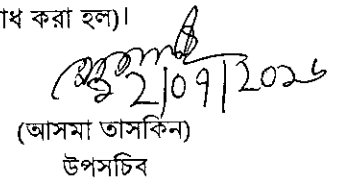 াধ করা হল)।
2|09|2026
(আসমা তাসকিন)
উপসচিব